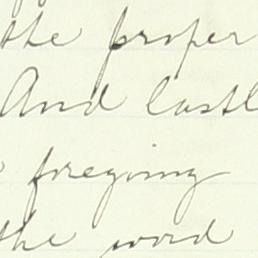 the proper
And lastl
foregoing
the word